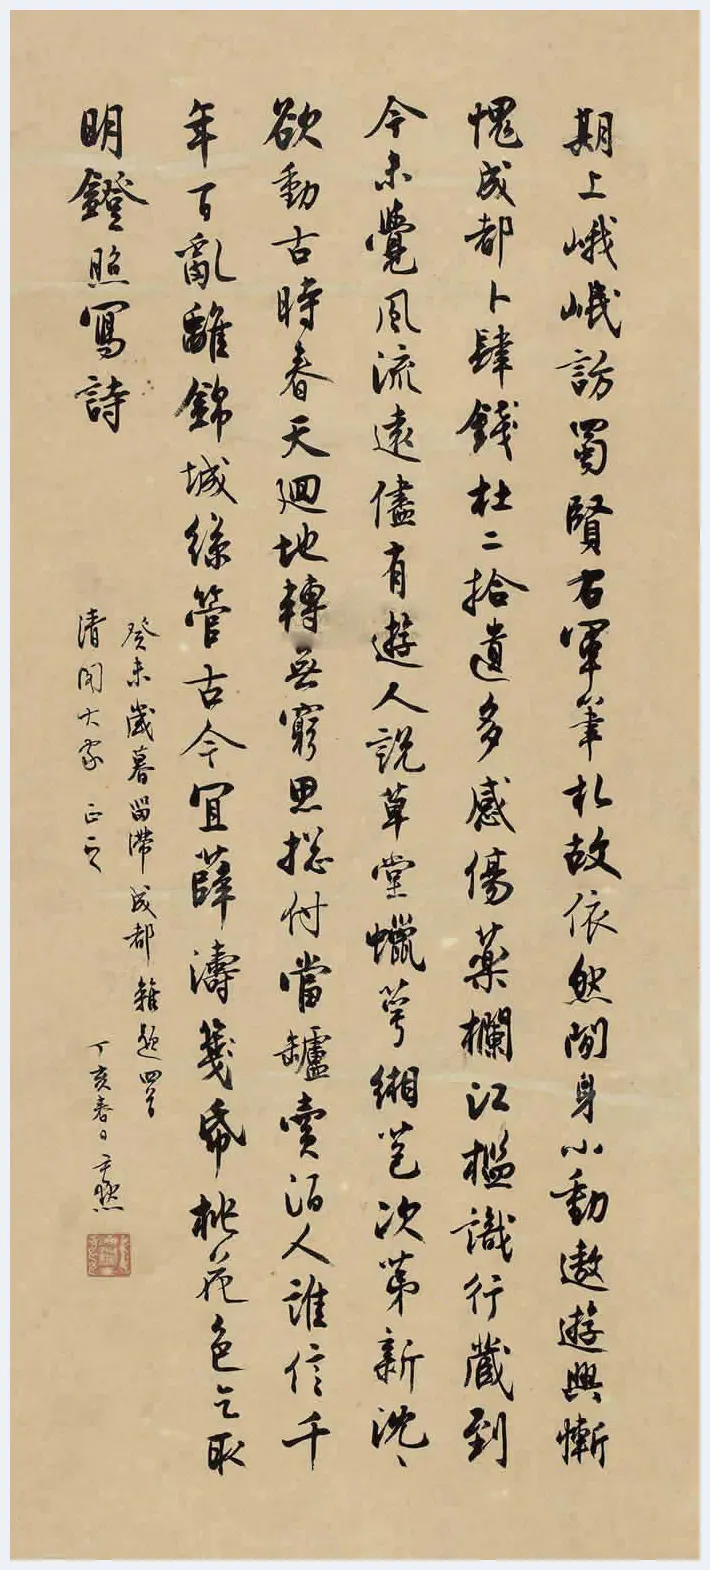 期上峨岷訪蜀賢右軍筆札故依然閒身小動遨遊興慚
愧成都卜肆錢杜二拾遺多感傷藥欄江檻識行藏到
今未覺風流遠儘有遊人說草堂蠟萼緗苞次第新沈〻
欲動古時春天迴地轉無窮思揔付當罏賣酒人誰信千
年百亂離錦城絲管古今宜薛濤箋帋桃花色乞取
明鐙照寫詩
癸未歲暮留滯成都雜題四首
清閣大家正之
丁亥春日尹默